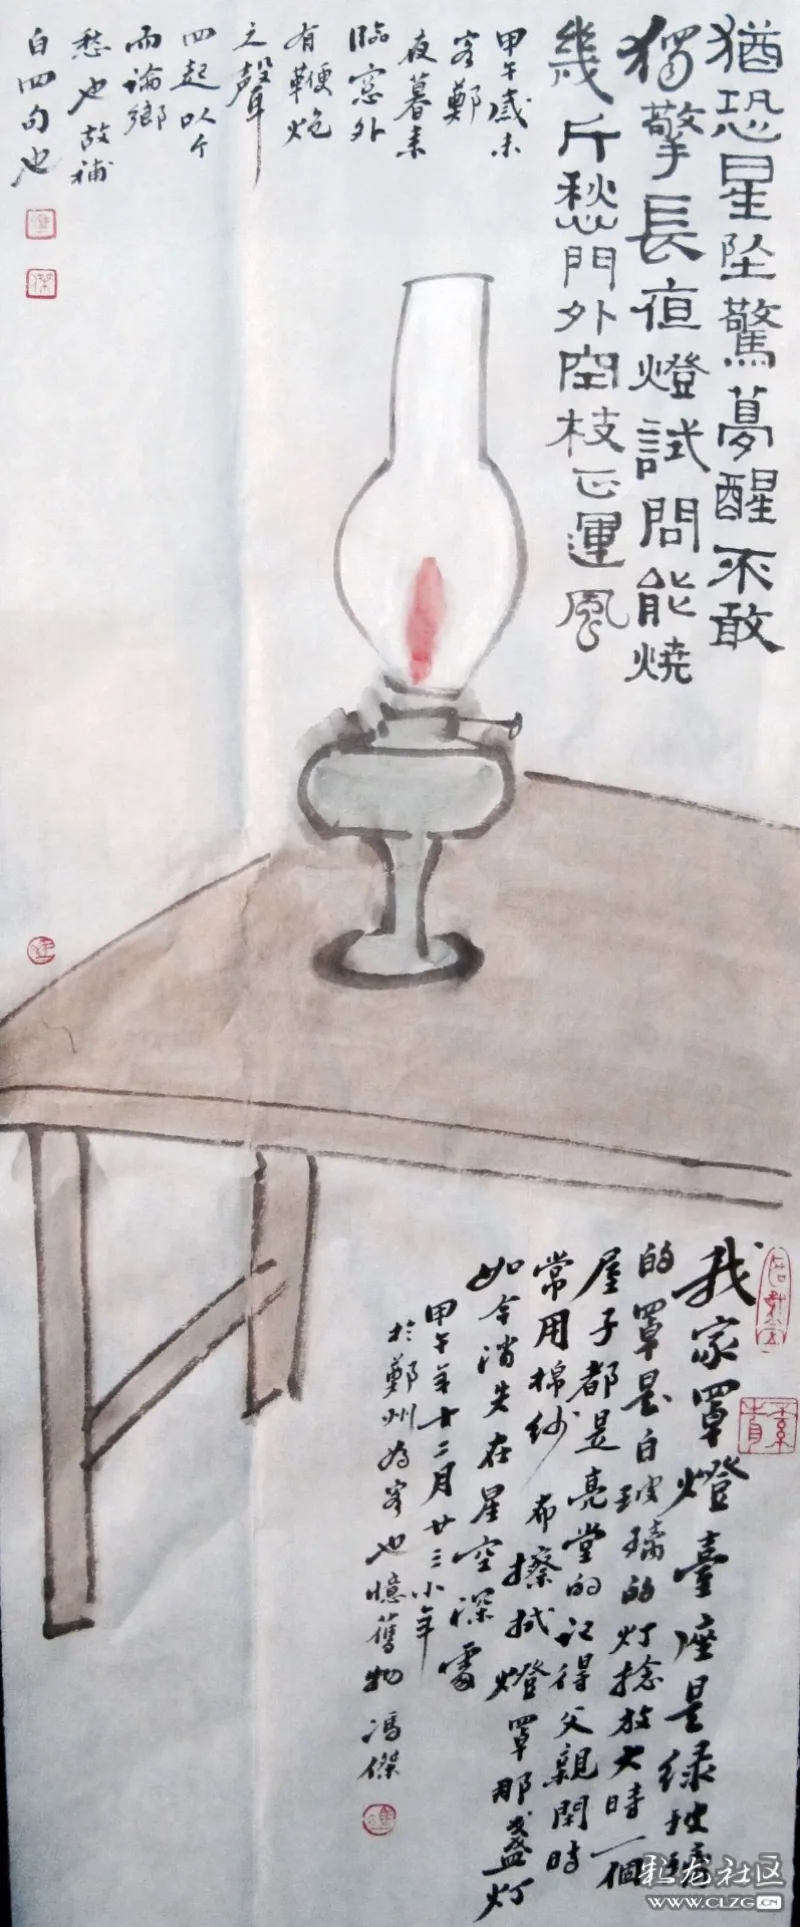 猶恐星坠驚夢醒不敢
獨擎長夜燈試問能燒
幾斤愁門外空枝正運風
甲午歲末
客鄭
夜暮来
臨窓外
有鞭炮
之聲
四起以个
而論鄉
愁也故補
白四句也
我家罩燈臺座是绿玻璃
的罩是白玻璃的灯捻放大時一個
屋子都是亮堂的记得父親閑時
常用棉纱布擦拭燈罩那盏灯
如今消失在星空深處
甲午年十二月廿三小年
於鄭州為客也憶舊物馮傑
龙社区
WWW.CLZG.CN